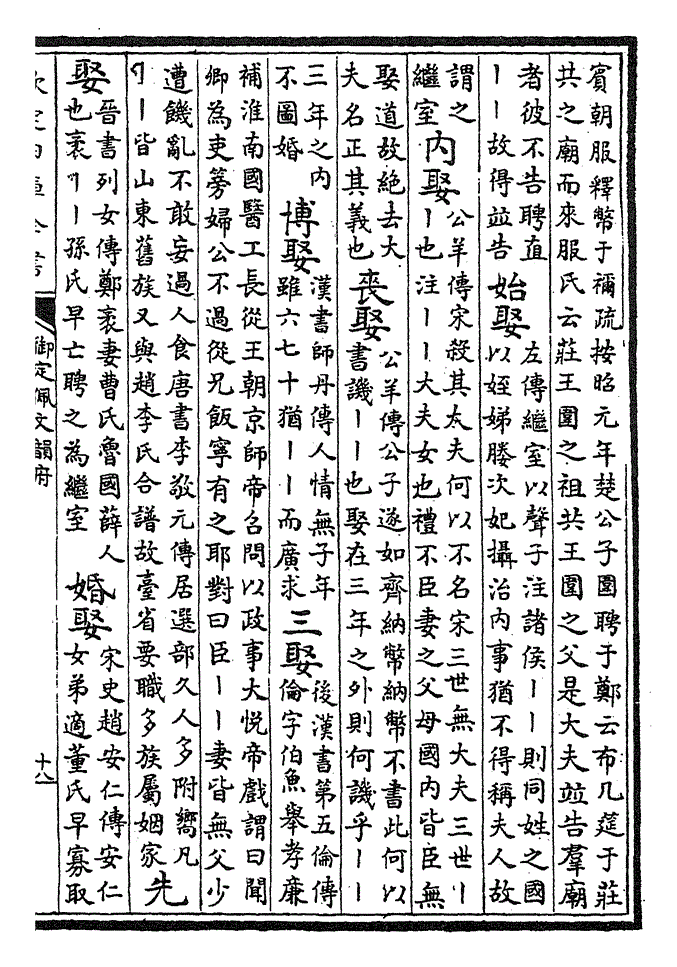 賓朝服釋幣于禰疏按昭元年楚公子圍聘于鄭云布几筵于莊
共之廟而來服氏云莊王圍之祖共王圍之父是大夫竝告羣廟
者彼不告聘直
丨丨故得竝告
始娶
左傳繼室以聲子注諸侯丨丨則同姓之國
以姪娣媵次妃攝治内事猶不得稱夫人故
謂之
繼室
内娶
公羊傳宋殺其大夫何以不名宋三世無大夫三世丨
丨也注丨丨大夫女也禮不臣妻之父母國内皆臣無
娶道故絶去大
夫名正其義也
喪娶
公羊傳公子遂如齊納幣納幣不書此何以
書譏丨丨也娶在三年之外則何譏乎丨丨
三年之内
不圖婚
博娶
漢書師丹傳人情無子年
雖六七十猶丨丨而廣求
三娶
後漢書第五倫傳
倫字伯魚舉孝廉
補淮南國醫工長從王朝京師帝召問以政事大悅帝戲謂曰聞
卿為吏篣婦公不過從兄飯寧有之耶對曰臣丨丨妻皆無父少
遭饑亂不敢妄過人食唐書李敬元傳居選部久人多附嚮凡
𠃌丨皆山東舊族又與趙李氏合譜故臺省要職多族屬姻家
先娶
晉書列女傳鄭袤妻曹氏魯國薛人
也袤𠃌丨孫氏早亡聘之為繼室
婚娶
宋史趙安仁傳安仁
女弟適董氏早寡取
欽定四庫全書
御定佩文韻府
十八